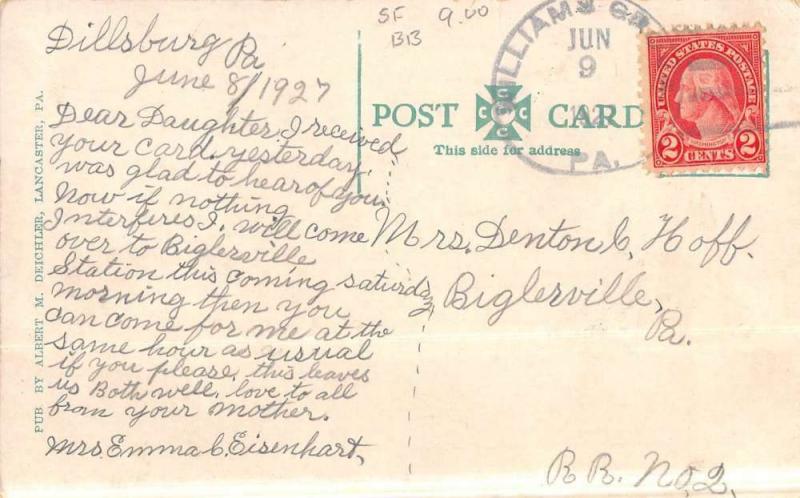 Dillsburg Pa
June 8/1927
Dear Daughter I received
your card. yesterday.
was glad to hear of you
Now if nothing
Interfires I. will come
over to Biglerville
Station this coming saturday
morning then you
can come for me at the
same hour as usual
if you please, this leaves
us Both well, love to all
from your mother.
Mrs. Emma C. Eisenhart,
PUB BY ALBERT M. DEICHLER, LANCASTER, PA.
SF 9.00
BB
POST CARD
This side for address
JUN
9
PA.
UNITED STATES POSTAGE
WASHINGTON
2 CENTS 2
Mrs. Denton C. Hoff.
Biglerville,
Pa.
R.R. No, 2.